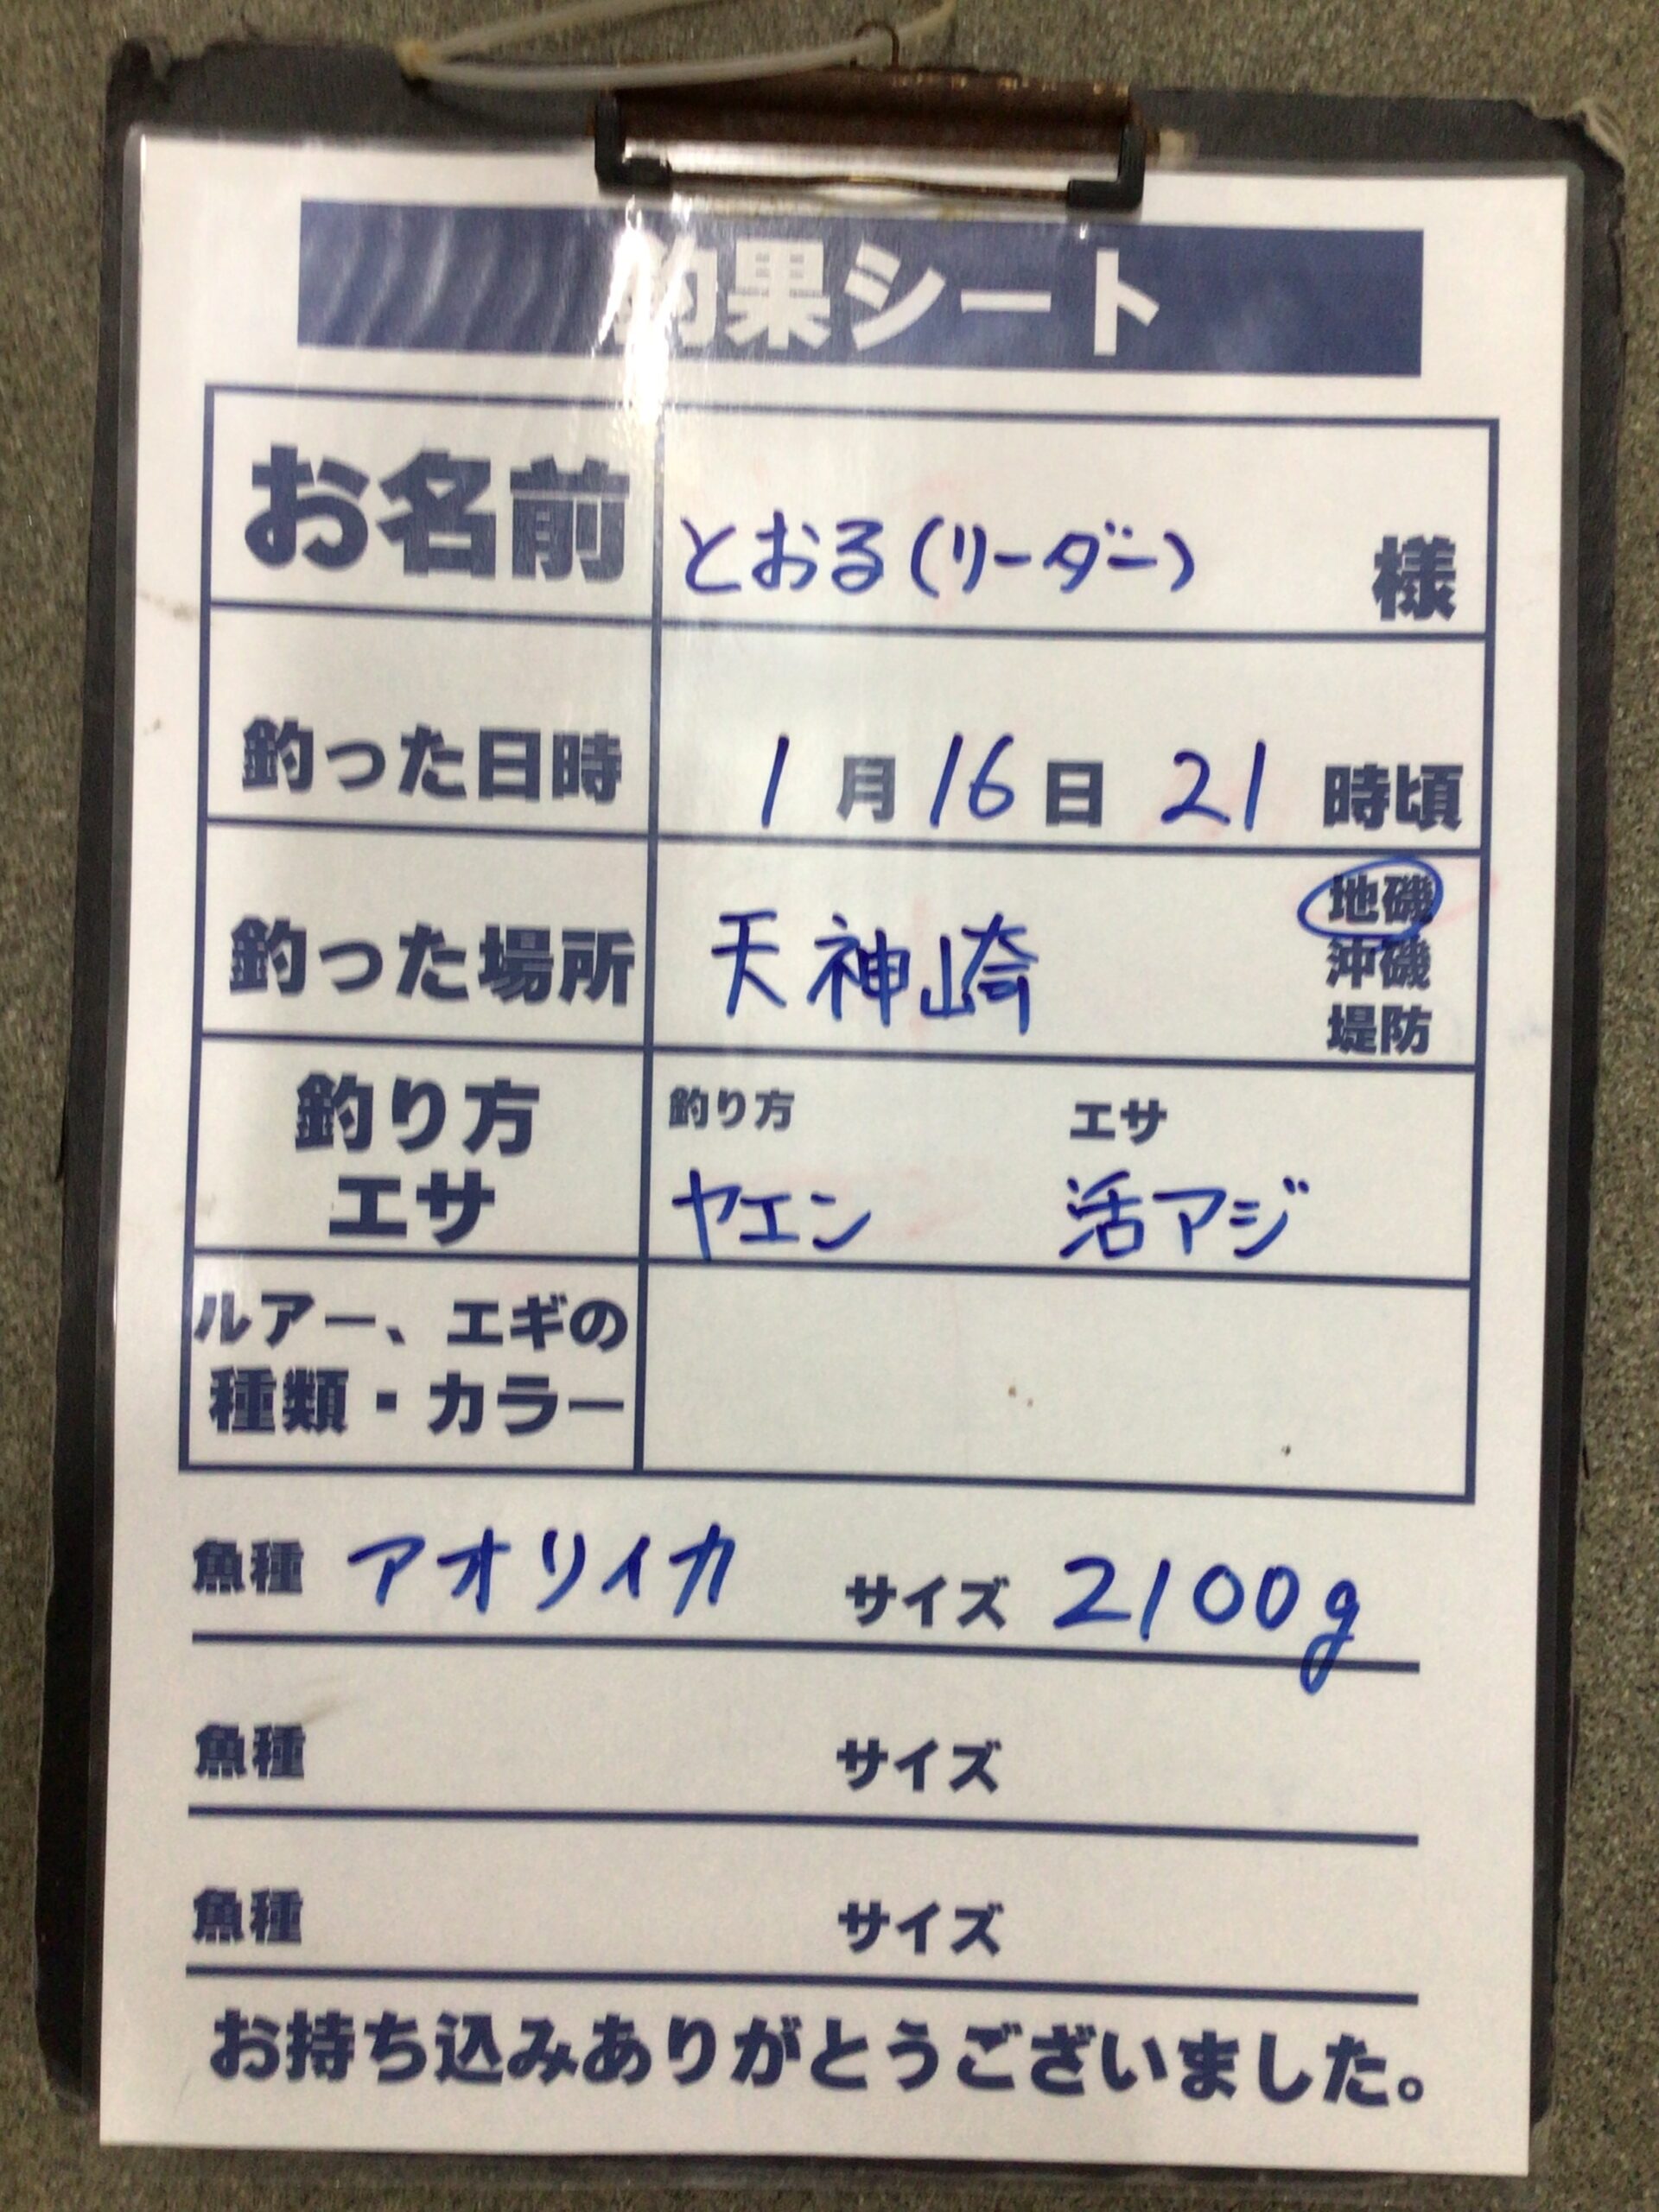 釣果シート
お名前 とおる(リーダー) 様
釣った日時 1月16日 21時頃
釣った場所 天神崎 地磯
沖磯
堤防
釣り方 釣り方 エサ
エサ ヤエン 活アジ
ルアー、エギの
種類・カラー
魚種 アオリイカ サイズ 2100g
魚種 サイズ
魚種 サイズ
お持ち込みありがとうございました。